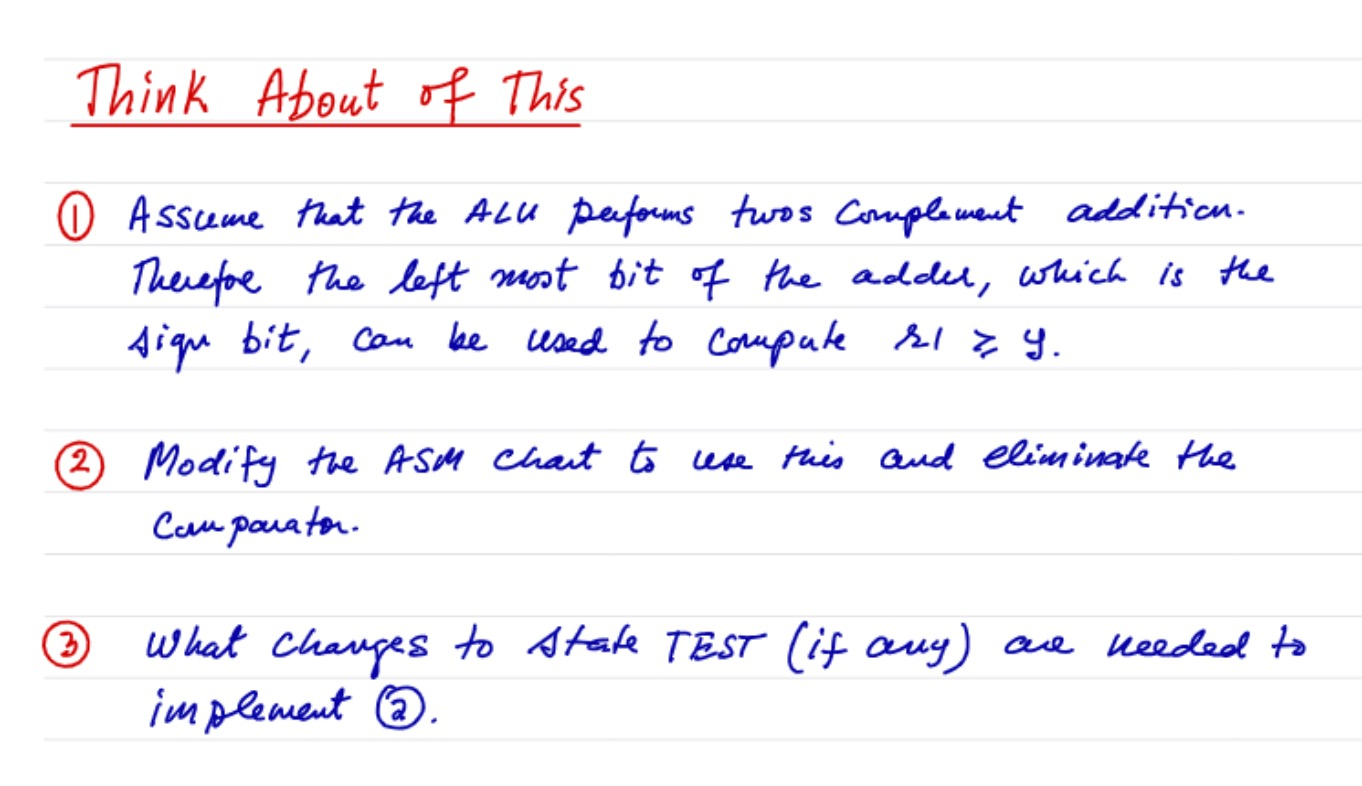 Think About of This
① Assume that the ALU performs twos Complement addition.
Therefore the left most bit of the adder, which is the
sign bit, can be used to compute r1 ≥ y.
② Modify the ASM chart to use this and eliminate the
Comparator.
③ What changes to state TEST (if any) are needed to
implement ②.